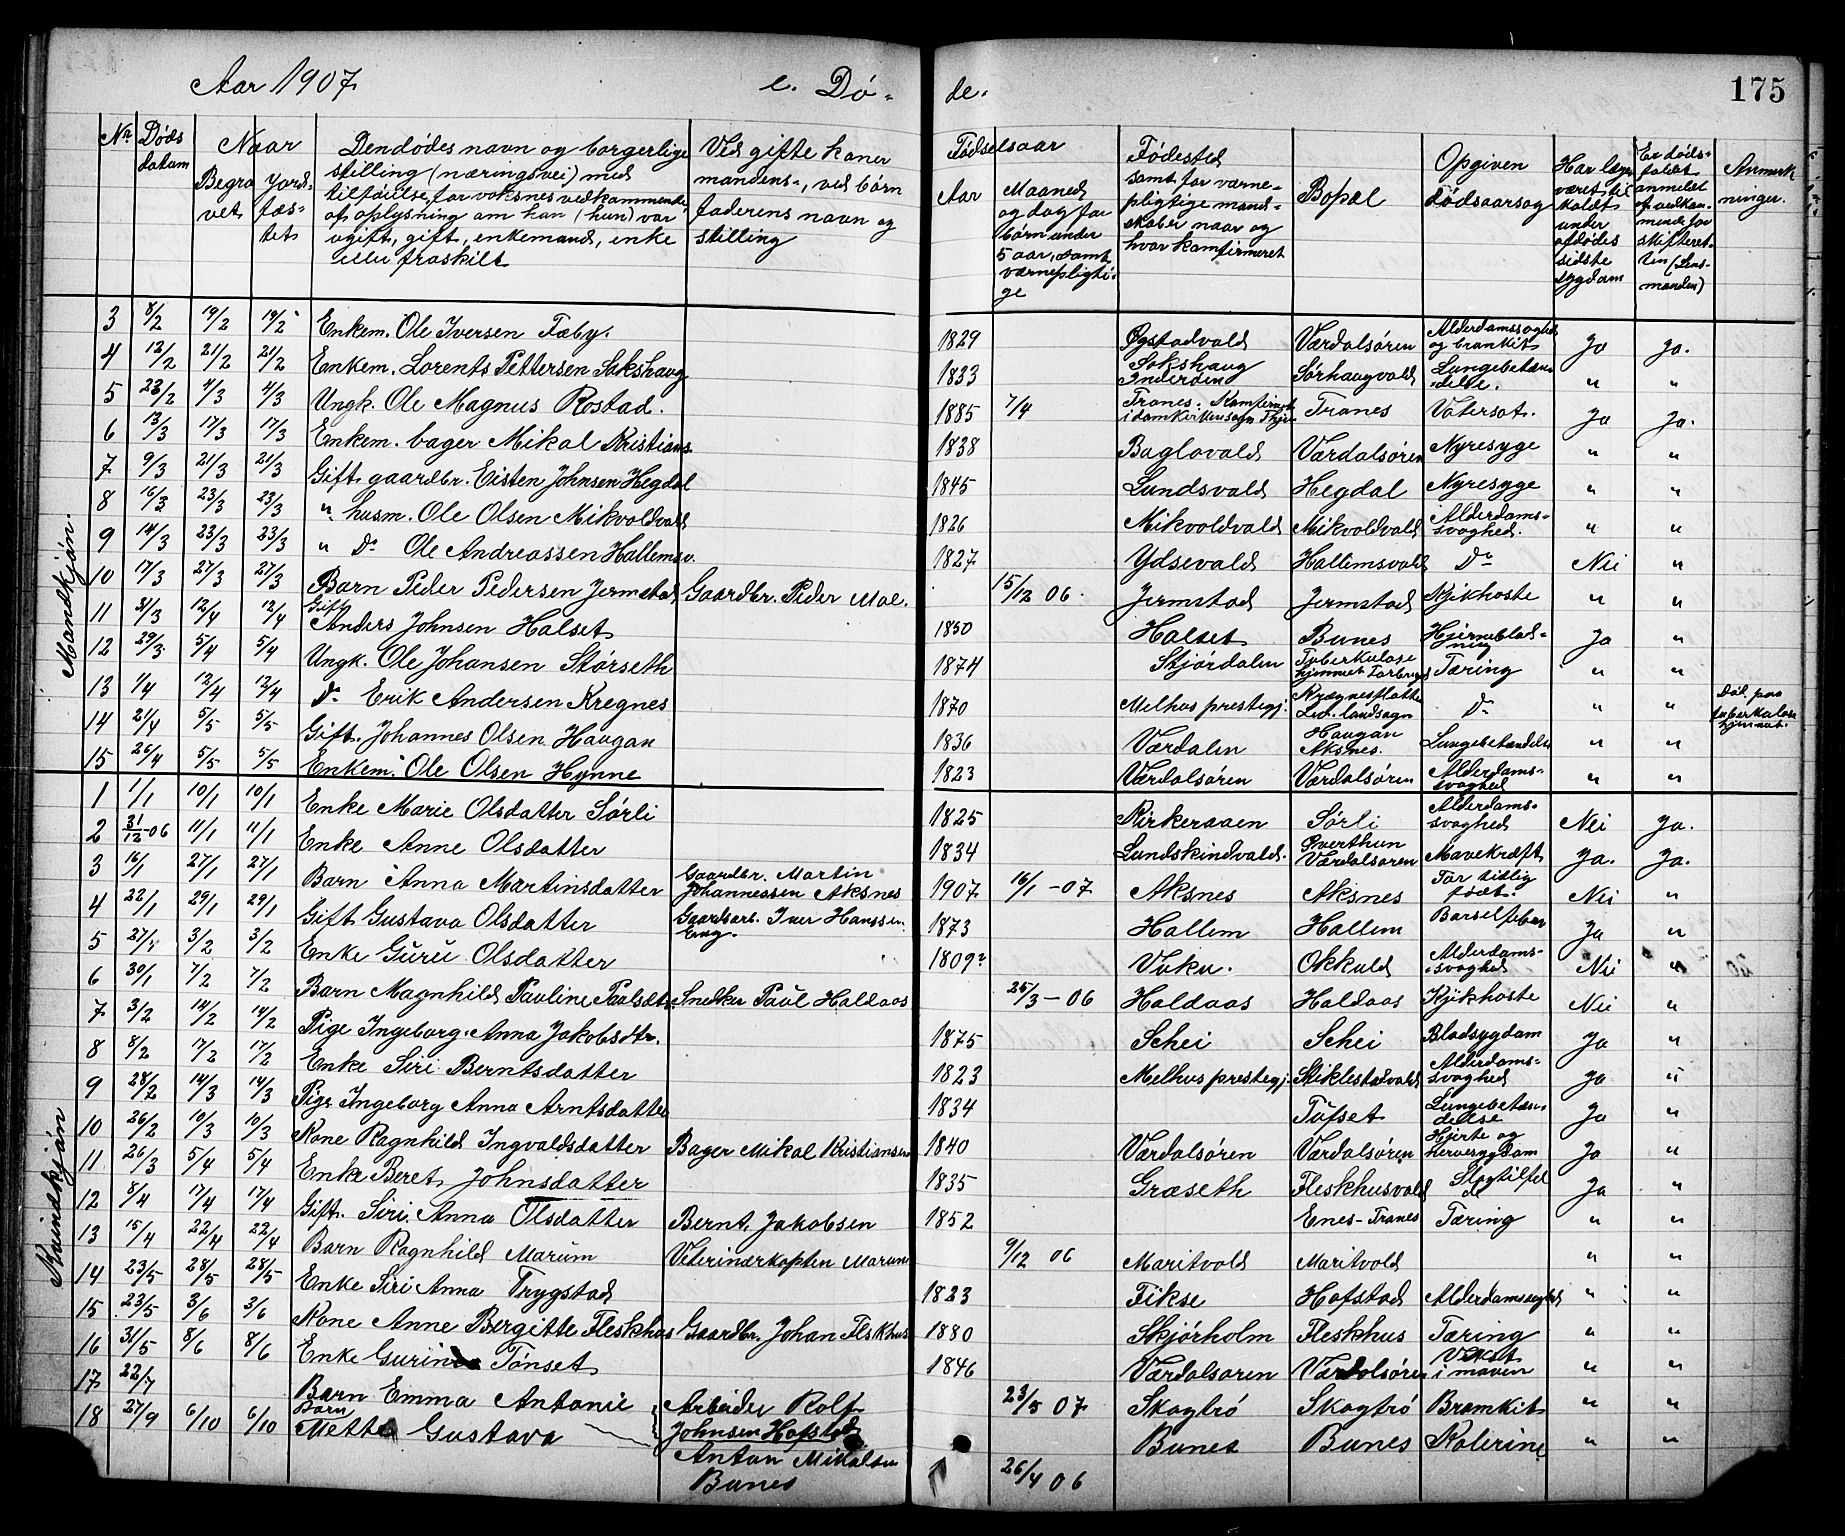 Aar 1907
e. Dø-
de.
175
Nr.
Døds datum
Naar
Begravet
Jordfæstet
Den dødes navn og borgerlige
stilling (næringsvei) med
tilføielse, for voksnes vedkommende,
af oplysning om han (hun) var
ugift, gift, enkemand, enke
eller fraskilt
Ved gifte koner
mandens-, ved børn
faderens navn og
stilling
Fødselsaar
Aar
Maaned
og dag for
børn under
5 aar, samt
værnepligti-
ge
Fødested
samt for værne-
pligtige mand-
skaber naar og
hvor konfirmeret
Bopæl
Opgiven
Dødsaarsag
Har læge
været til-
kaldt
under
afdødes
sidste
sygdom
Er døds-
faldet
anmeldt
af vedkom-
mende for
skifteret-
ten (Lens-
manden)
Anmærk
ninger.
Mandkjøn.
3 8/2 19/2 19/2 Enkem. Ole Iversen Fæby. 1829 Øgstadvald Værdalsøren Alderdomssvaghed og brankit Ja Ja.
4 12/2 21/2 21/2 Enkem. Lorents Pettersen Sakshaug 1833 Sakshaug Inderøen Sørhaugvald Lungebetæn-delse. " "
5 23/2 4/3 4/3 Ungk. Ole Magnus Rostad. 1885 7/4 Tranes. Tranes Vatersot. Ja Ja.
6 13/3 17/3 17/3 Enkem. bager Mikal Kristians. 1838 Baglovald Værdalsøren Nyresyge " "
7 9/3 21/3 21/3 Gift gaardbr. Eisten Johnsen Hegdal 1845 Lundsvald Hegdal Nyresyge " "
8 16/3 23/3 23/3 " husm. Ole Olsen Mikvoldvald 1826 Mikvoldvald Mikvoldvald Alderdoms-svaghed. " "
9 14/3 23/3 23/3 " Do Ole Andreassen Hallemsv. 1827 Ydsevald Hallemsvald Do Nei "
10 17/3 27/3 27/3 Barn Peder Pedersen Jermstad Gaardbr. Peder Moe. 15/12 06. Jermstad Jermstad Kikhoste " "
11 31/3 12/4 12/4 Gift Anders Johnsen Halset 1850 Halset Bunes Hjerneblød-ning Ja "
12 29/3 5/4 5/4 Ungk. Ole Johansen Størseth 1874 Stjørdalen Tuberkulose hjemmet Forbregd Tæring " "
13 1/4 12/4 12/4 Do Erik Andersen Kregnes 1870 Melhus prestegj. Krægnesflatte Lev. landsogn Do " " Død paa tuberkulose hjemmet.
14 21/4 5/5 5/5 Gift. Johannes Olsen Haugan 1836 Værdalen Haugan Aksnes. Lungebetændelse " "
15 26/4 5/5 5/5 Enkem. Ole Olsen Hynne 1823 Værdalsøren Værdalsøren Alderdoms-svaghed " "
Kvindkjøn
1 1/1 10/1 10/1 Enke Marie Olsdatter Sørli 1825 Kirkeraaen Sørli Alderdoms-svaghed Nei Ja.
2 31/12-06 11/1 11/1 Enke Anne Olsdatter 1834 Lundskindvald. Øverthun Værdalsøren Mavekræft Ja. Ja.
3 16/1 27/1 27/1 Barn Anna Martinsdatter Gaardbr. Martin Johannessen Aksnes 1907 16/1 -07 Aksnes Aksnes For tidlig født. Nei "
4 22/1 29/1 29/1 Gift Gustava Olsdatter Gaardsarb. Iver Hanssen Eng. 1873 Hallem Hallem Barselfeber Ja "
5 27/1 3/2 3/2 Enke Guru Olsdatter 1809? Vuku. Okkuld Alderdoms-svaghed Nei "
6 30/1 7/2 7/2 Barn Magnhild Pauline Paulsdtr. Snedker Paul Haldaas 25/3 - 06 Haldaas Haldaas Kikhoste Nei "
7 3/2 14/2 14/2 Pige Ingeborg Anna Jakobsdtr. 1875 Schei Schei Blodsygdom Ja "
8 8/2 17/2 17/2 Enke Siri Berntsdatter 1823 Melhus prestegj. Stiklestadvald Alderdoms-svaghed Ja "
9 28/2 14/3 14/3 Pige Ingeborg Anna Arntsdatter 1834 Tufset Lungebetæn-delse Ja "
10 26/2 10/3 10/3 Kone Ragnhild Ingvaldsdatter Bager Mikal Kristiansen 1840 Værdalsøren Værdalsøren Hjerte og nervesygdom Ja "
11 26/3 5/4 5/4 Enke Beret Johnsdatter 1835 Græseth Fleskhusvald Slagtilfælde Ja "
12 8/4 17/4 17/4 Gift. Siri Anna Olsdatter Bernt Jakobsen 1852 Enes-Tranes Tæring " "
13 15/4 22/4 22/4 Barn Ragnhild Marum Veterinærkaptein Marum 9/12 06 Maritvold Maritvold " "
14 23/5 28/5 28/5 Enke Siri Anna Trygstad 1823 Fikse Hofstad Alderdomssvaghed " "
15 23/5 3/6 3/6 Kone Anne Bergitte Fleskhus Gaardbr. Johan Fleskhus 1880 Skjørholm Fleskhus Tæring " "
16 31/5 8/6 8/6 Enke Gurine Tønset 1846 Værdalsøren Værdalsøren Vekst i maven " "
17 22/7 Barn Emma Antonie Arbeider Rolf Johnsen Hofstad 23/5 07 Skogbrö Skogbrö Bronkit " "
18 27/9 6/10 6/10 Barn Mette Gustava Anton Mikalsen Bunes 26/4 06 Bunes Bunes Kolerine " "